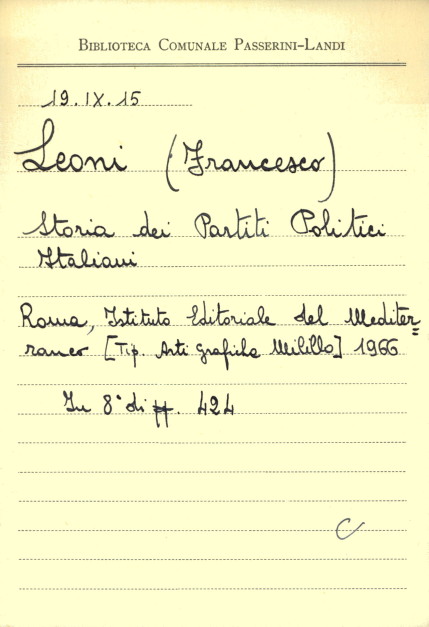 BIBLIOTECA COMUNALE PASSERINI-LANDI
19.IX.15
Leoni (Francesco)
Storia dei Partiti Politici
Italiani
Roma, Istituto Editoriale del Mediter=
raneo [Tip. Arti Grafiche Milillo] 1966
In 8° di pp. 424
C